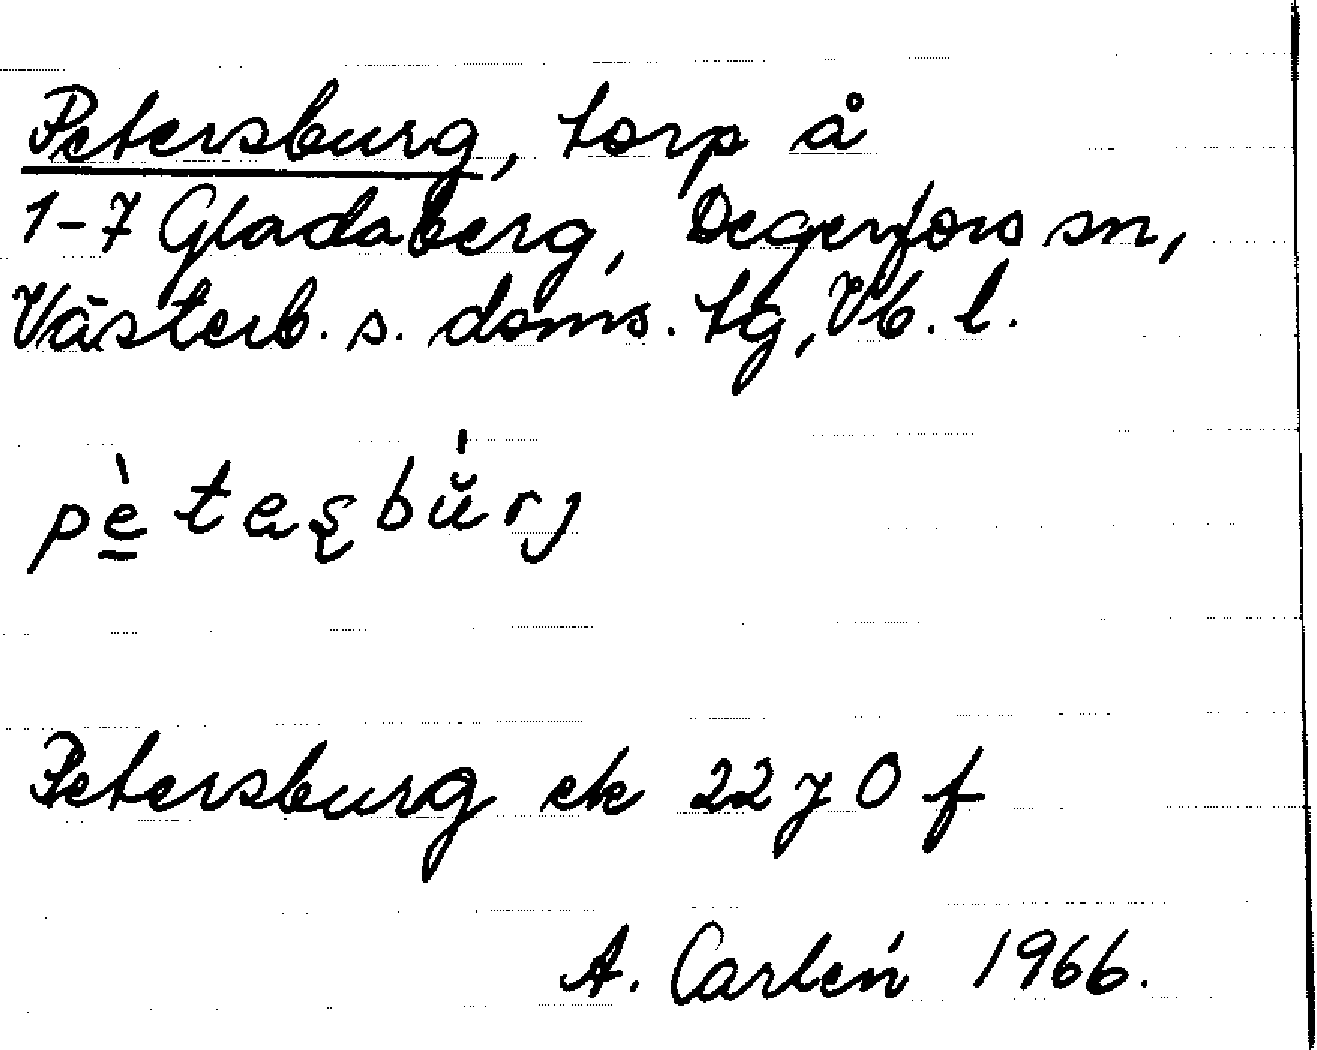 Petersburg, torp å
1-7 Gladaberg, Degerfors sn,
Västerb. s. doms. tg, Vb. l.
Petersburg ek 22 y 0 f
A. Carlén 1966.